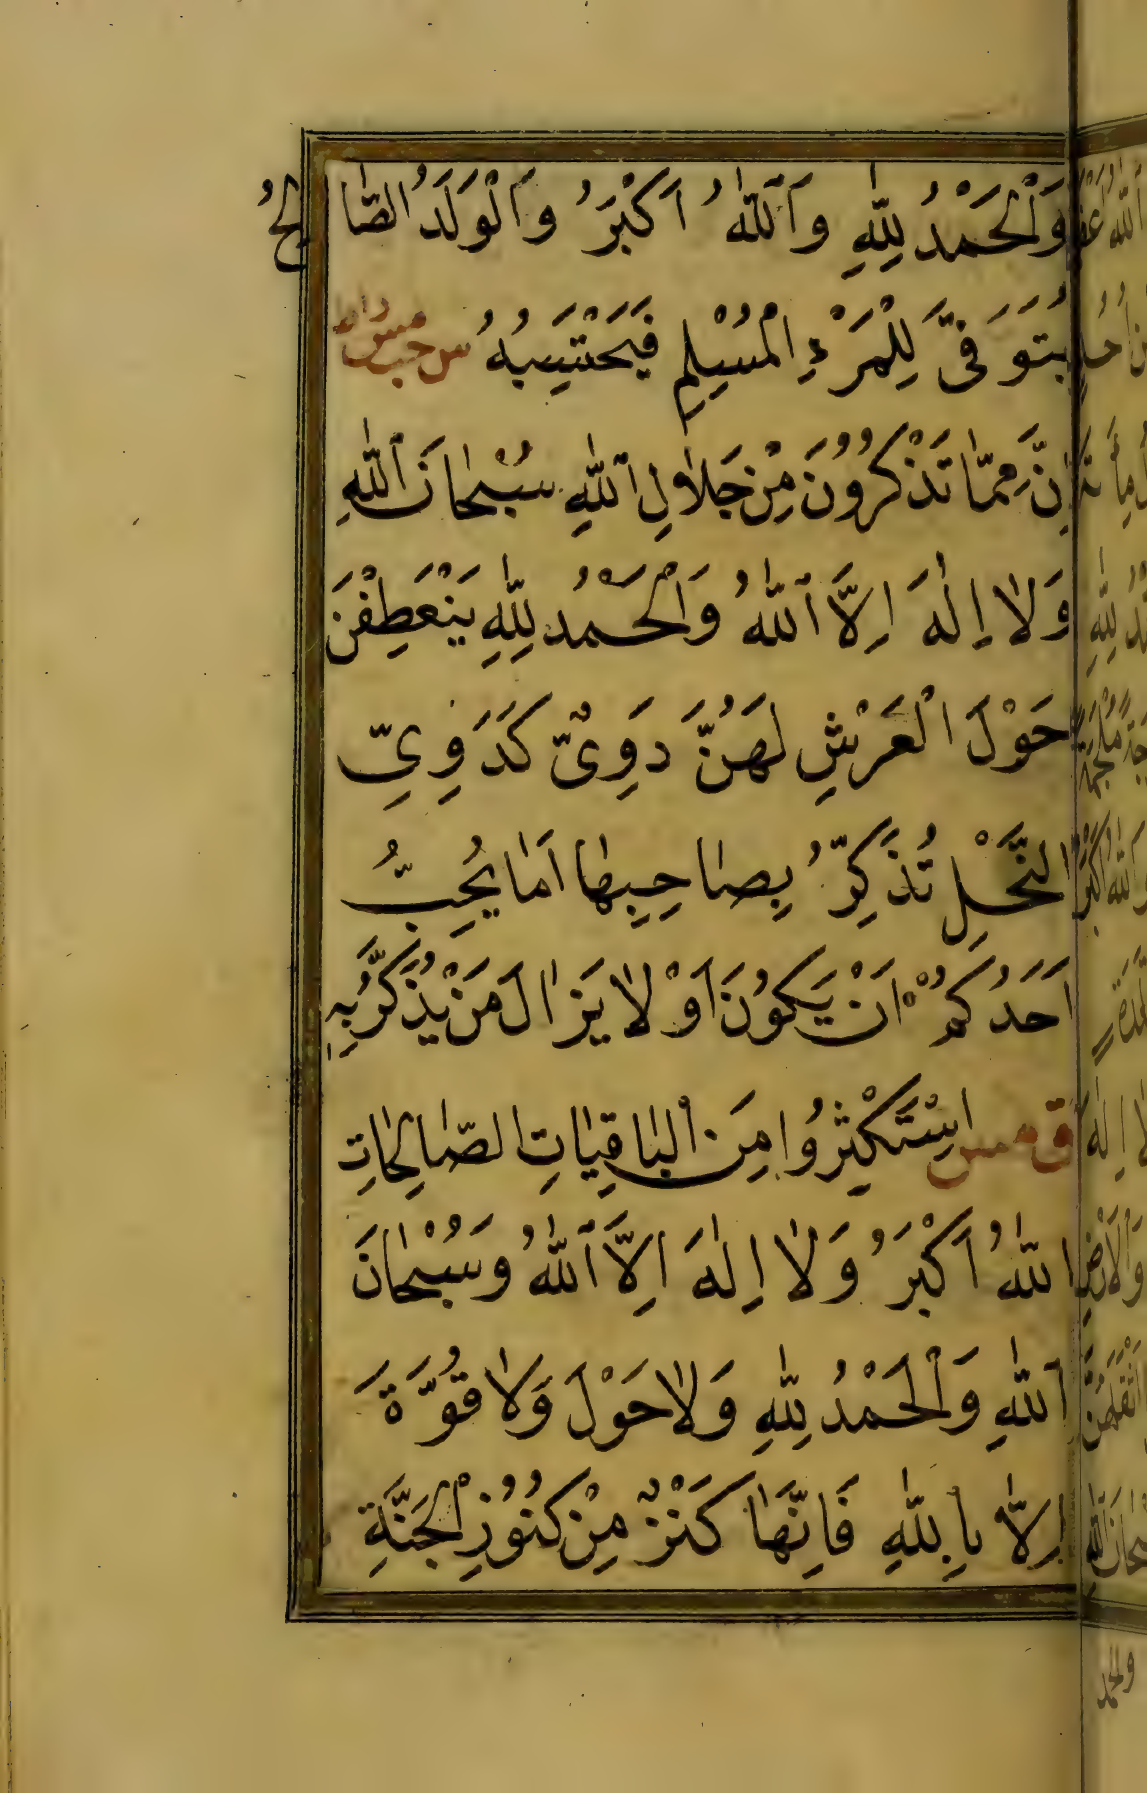 وَالْحَمْدُ لِلّٰهِ وَاللّٰهُ اَكْبَرُ وَالْوَلَدُ الصَّالِحُ
يُتَوَفّٰى لِلْمَرْءِ الْمُسْلِمِ فَيَحْتَسِبُهُ س حب مس ر ا ط
اِنَّ مِمَّا تَذْكُرُونَ مِنْ جَلَالِ اللّٰهِ سُبْحَانَ اللّٰهِ
وَلَا اِلٰهَ اِلَّا اللّٰهُ وَالْحَمْدُ لِلّٰهِ يَنْعَطِفْنَ
حَوْلَ الْعَرْشِ لَهُنَّ دَوِىٌّ كَدَوِىِّ
النَّحْلِ تُذَكِّرُ بِصَاحِبِهَا اَمَا يُحِبُّ
اَحَدُكُمْ اَنْ يَكُونَ اَوْ لَا يَزَالَ مَنْ يُذَكِّرُ بِهِ
ق مس اِسْتَكْثِرُوا مِنَ الْبَاقِيَاتِ الصَّالِحَاتِ
اللّٰهُ اَكْبَرُ وَلَا اِلٰهَ اِلَّا اللّٰهُ وَسُبْحَانَ
اللّٰهِ وَالْحَمْدُ لِلّٰهِ وَلَا حَوْلَ وَلَا قُوَّةَ
اِلَّا بِاللّٰهِ فَاِنَّهَا كَنْزٌ مِنْ كُنُوزِ الْجَنَّةِ